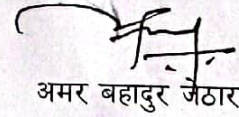 अमर बहादुर जैठार